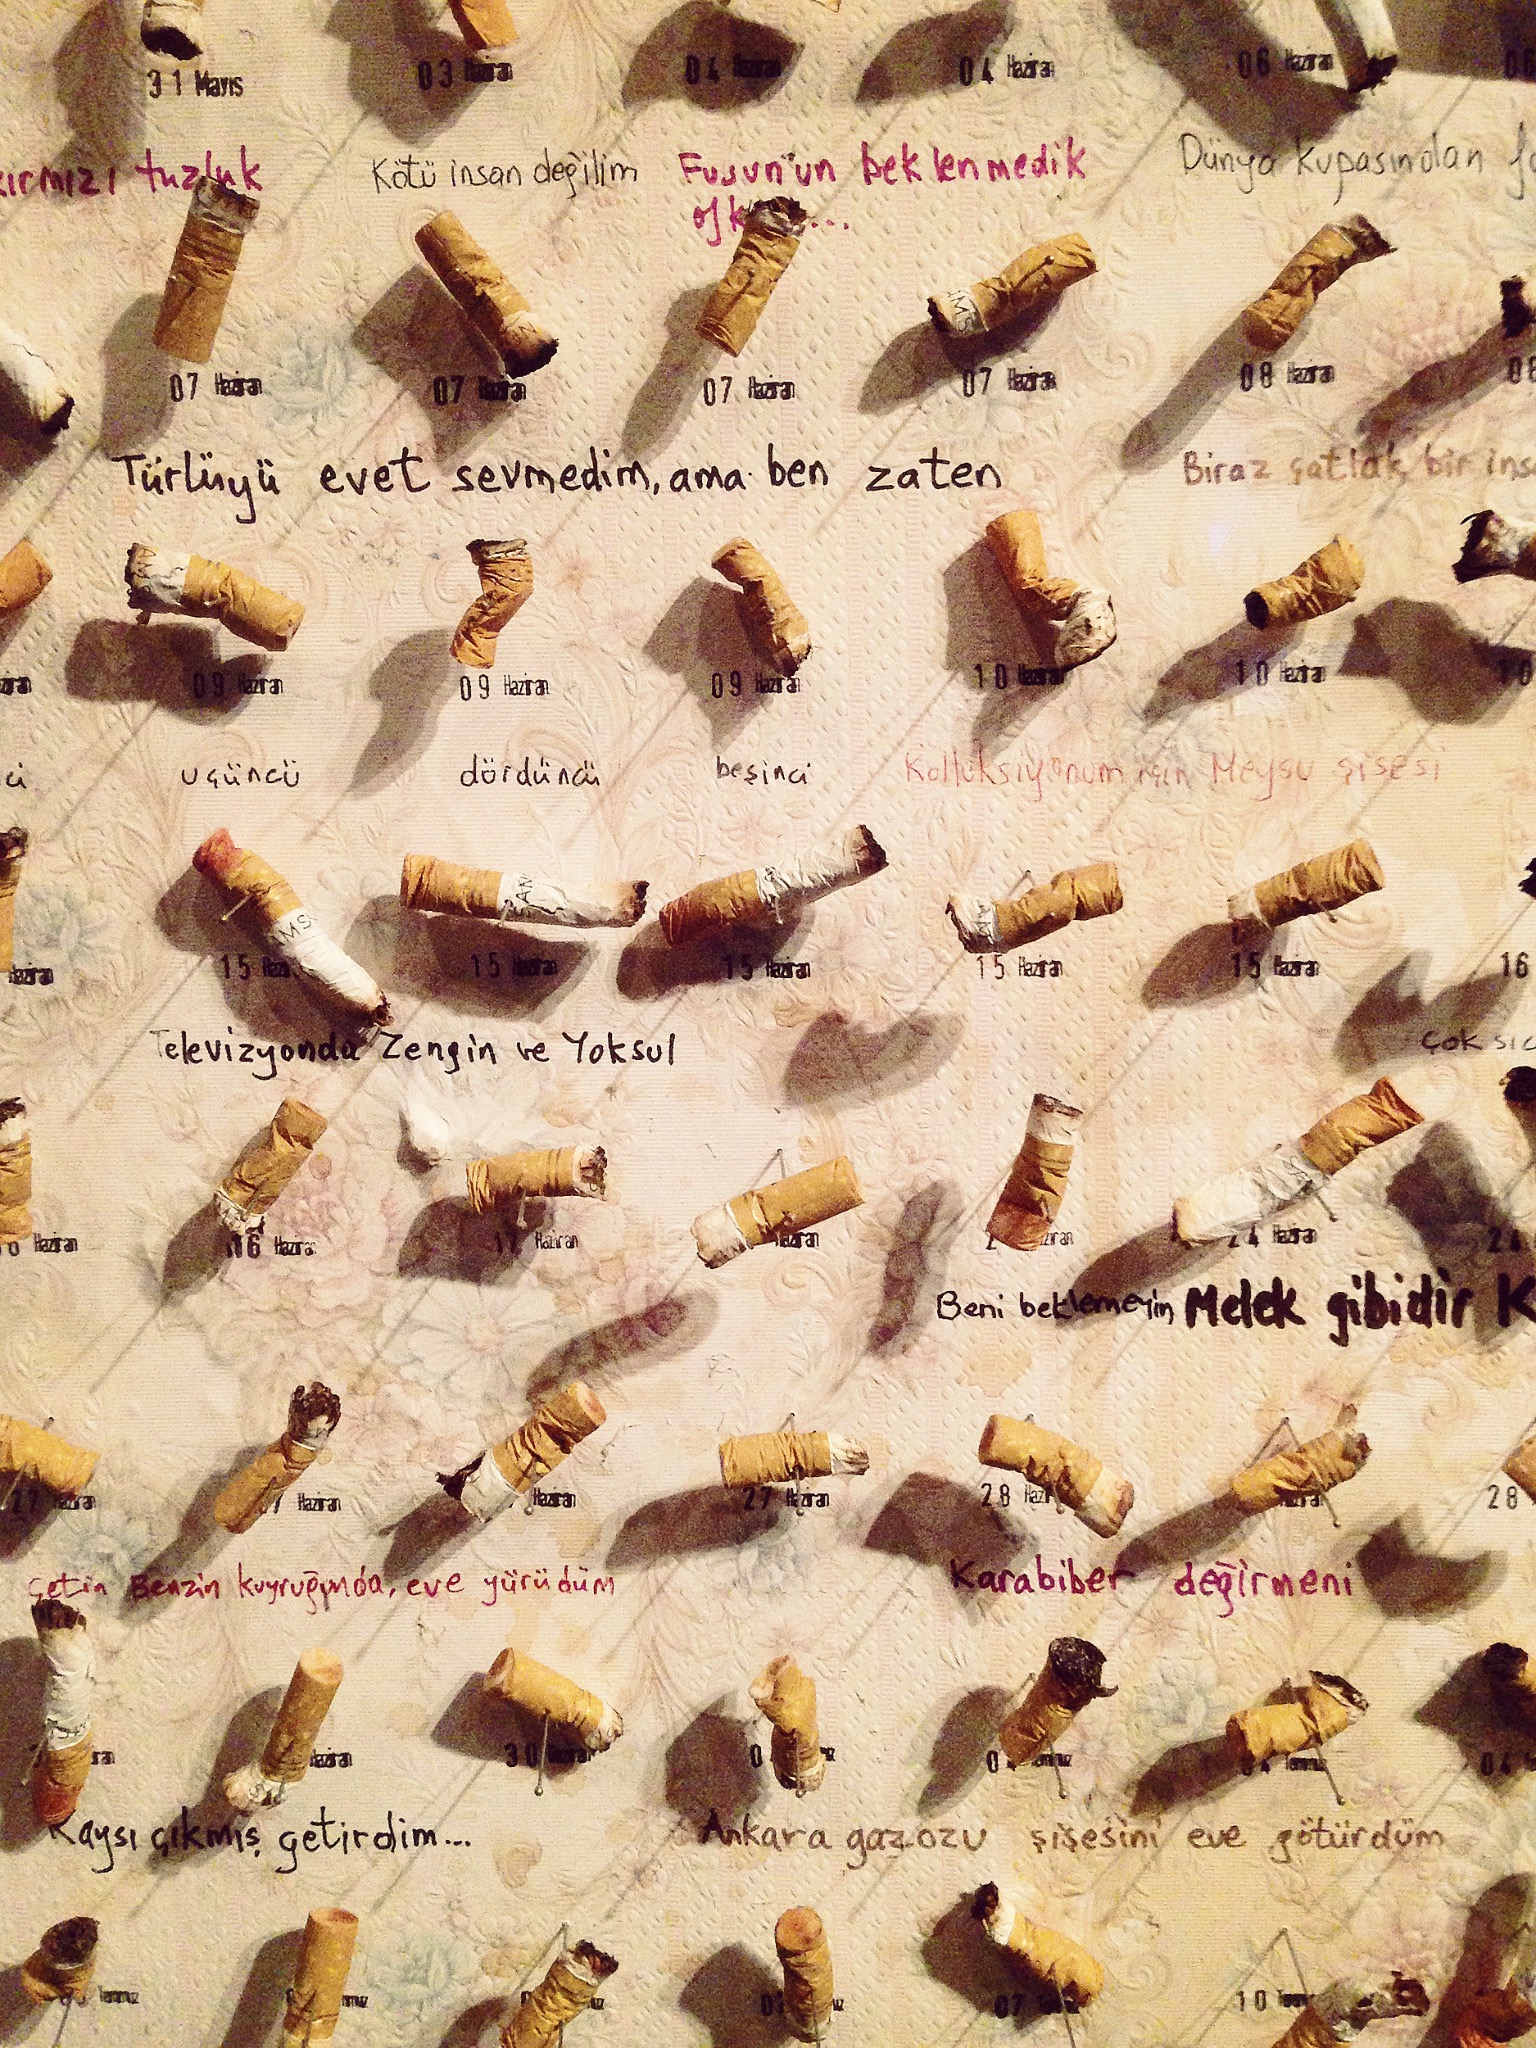 31 Mayıs 03 Haziran 04 Haziran 04 Haziran 06 Haziran 06
kırmızı tuzluk Kötü insan değilim Fusun'un beklenmedik Dünya kupasından
...
07 Haziran 07 Haziran 07 Haziran 07 Haziran 08 Haziran 08
Türlüyü evet sevmedim, ama ben zaten Biraz çatlak bir ins
09 Haziran 09 Haziran 09 Haziran 10 Haziran 10 Haziran 10
ci uçüncü dördüncü beşinci Kolluksiyonum için Meysu şişesi
Haziran 15 Haziran 15 Haziran 15 Haziran 15 Haziran 15 Haziran 16
Televizyonda Zengin ve Yoksul Çok sıc
Haziran 16 Haziran 17 Haziran 24 Haziran 24
Beni beklemeyin Melek gibidir K
27 Haziran Haziran Haziran 27 Haziran 28 28
Çetin Benzin kuyruğunda, eve yürüdüm Karabiber değirmeni
Haziran 30 Haziran 04 Temmuz 04 Temmuz 04
Kaysı çıkmış getirdim... Ankara gazozu şişesini eve götürdüm
Temmuz 07 Temmuz 10 Temmuz